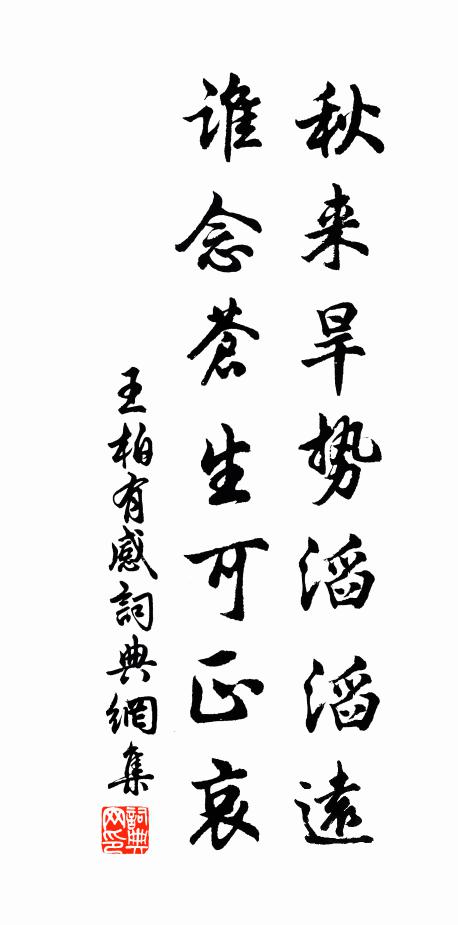 秋来旱势滔滔遠
谁念蒼生可正哀
王柏有感詞典網集
詞典网印